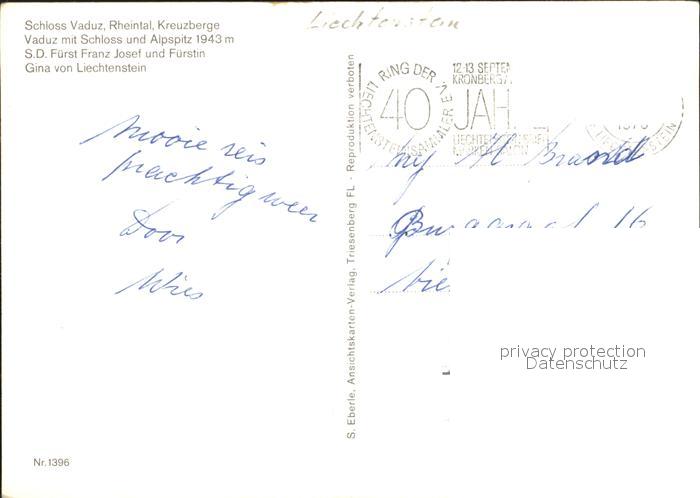 Schloss Vaduz, Rheintal, Kreuzberge
Vaduz mit Schloss und Alpspitz 1943 m
S.D. Fürst Franz Josef und Fürstin
Gina von Liechtenstein
Liechtenstein
RING DER LIECHTENSTEINSAMMLER E.V.
40 JAH
12-13 SEPTEM
KRONBERG/
mooie reis
prachtig weer
Door
Wies
S. Eberle, Ansichtskarten-Verlag, Triesenberg FL - Reproduktion verboten
16
privacy protection
Datenschutz
Nr. 1396